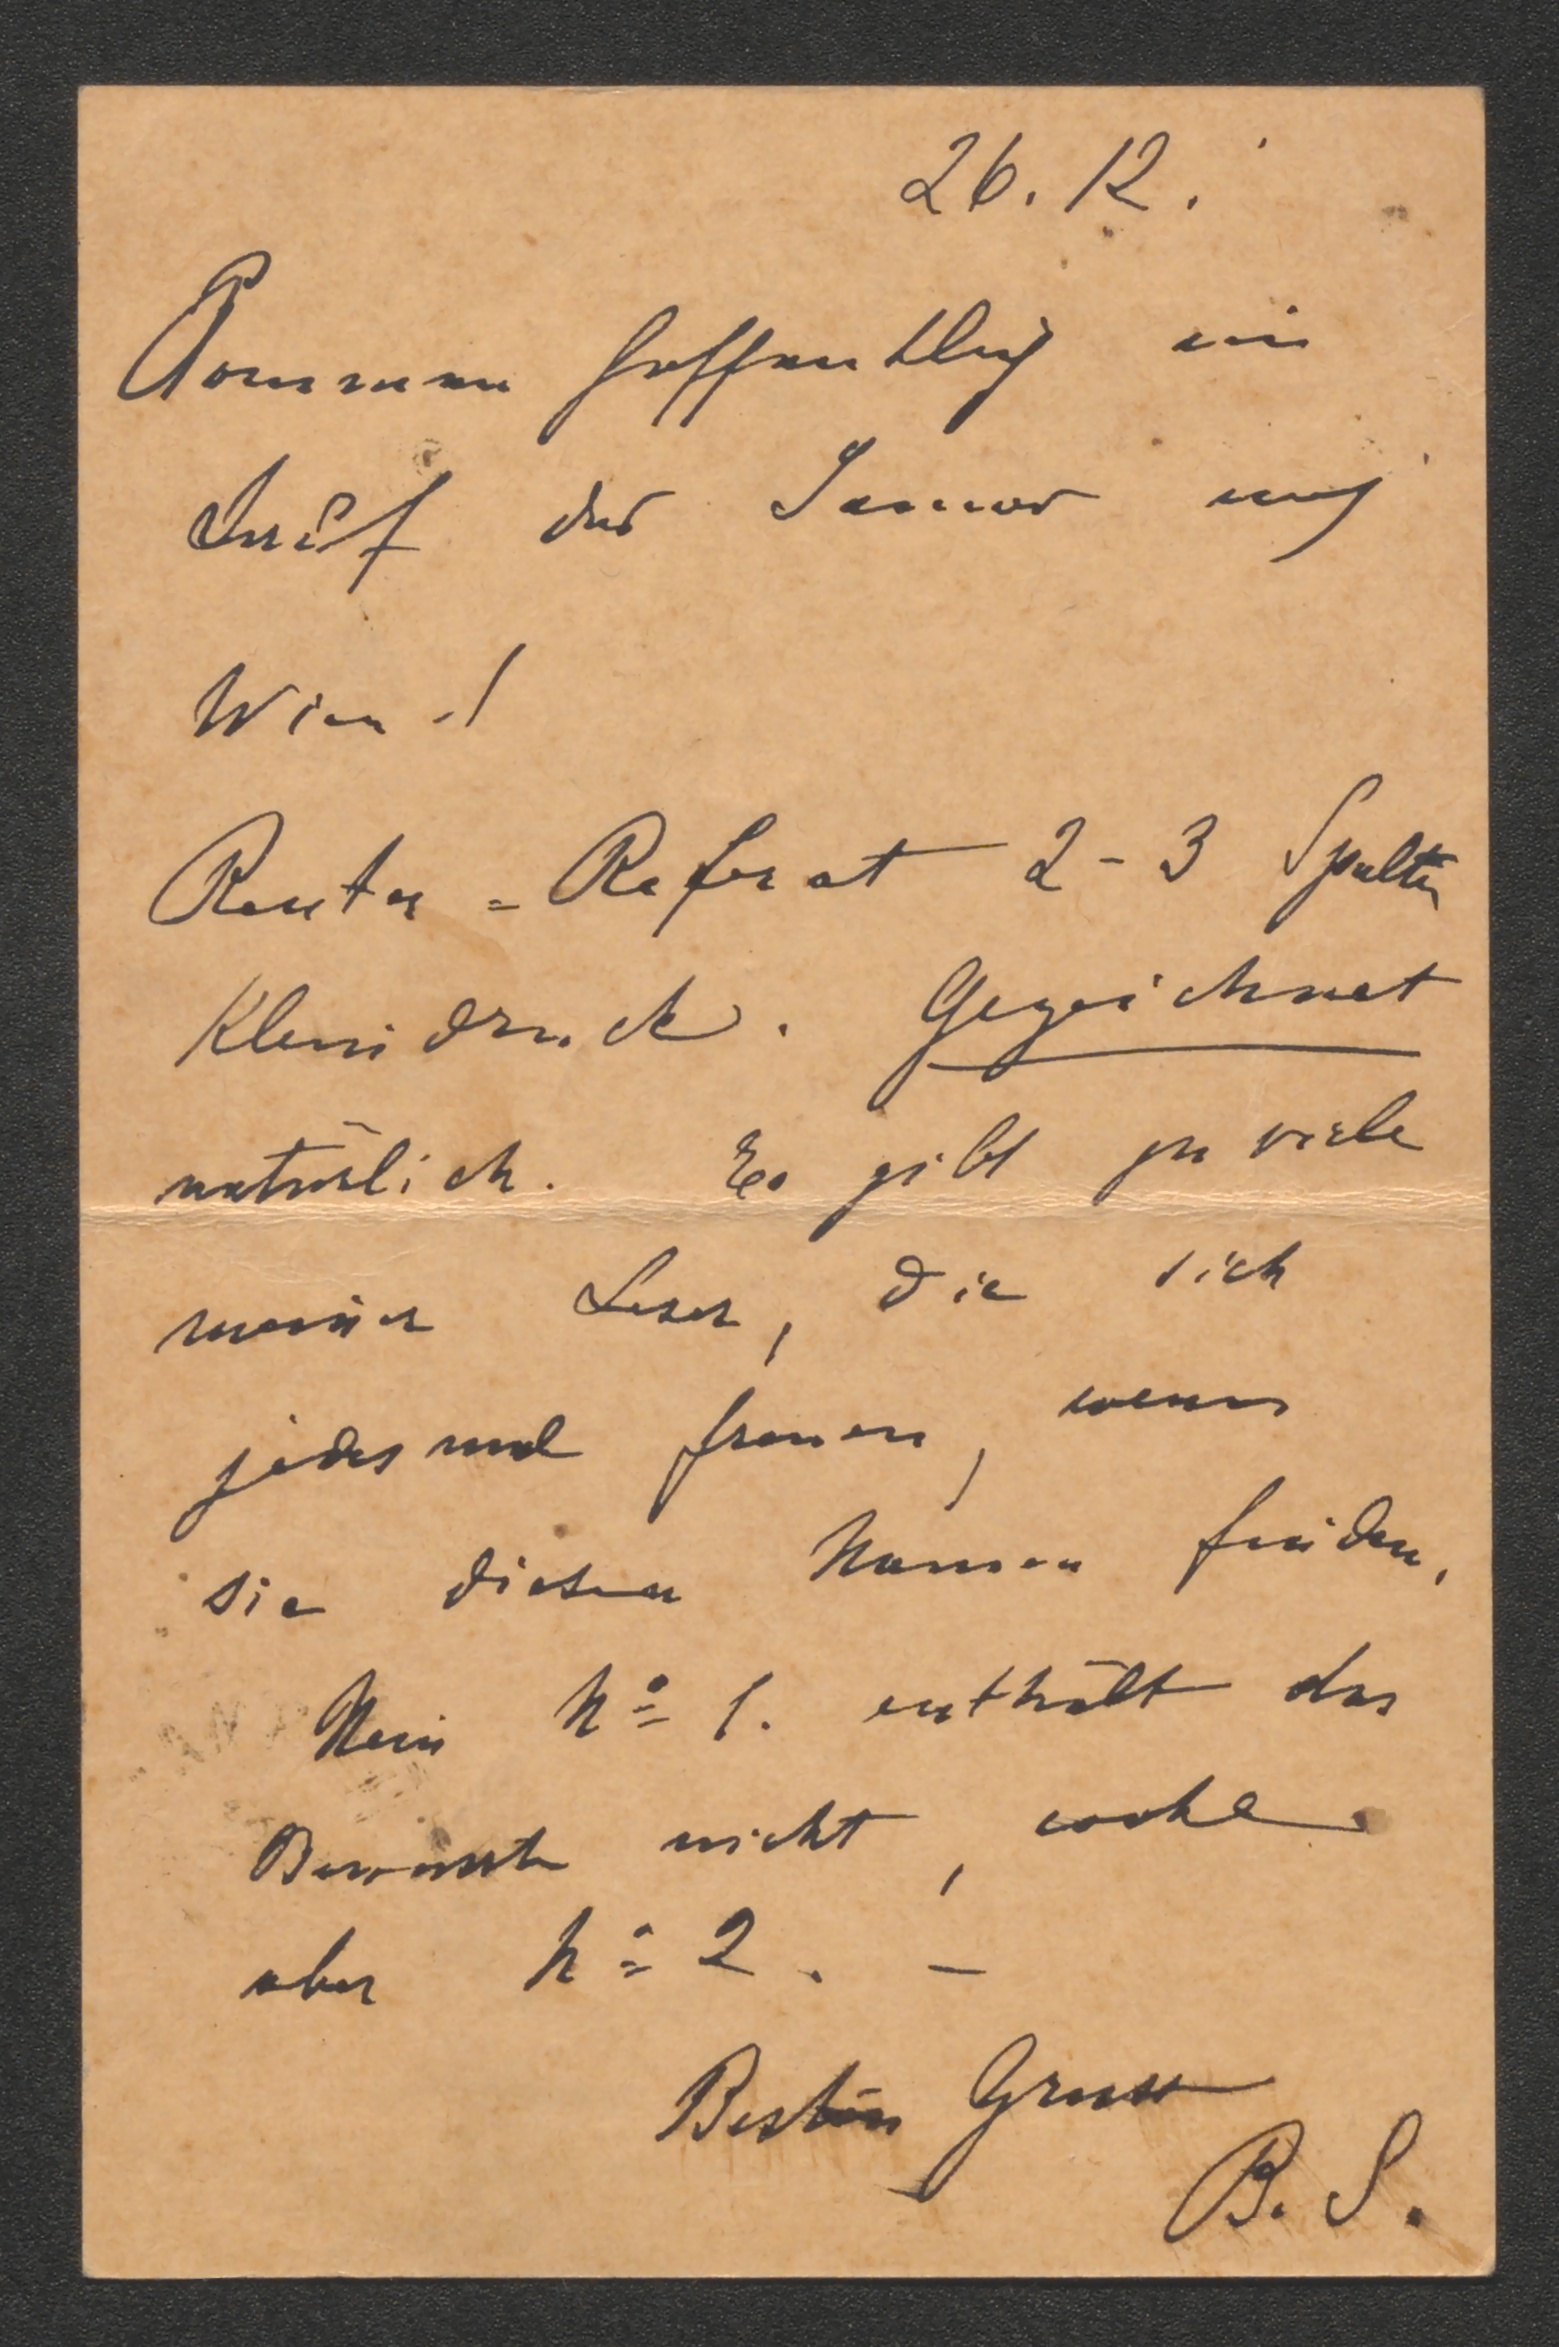 26. 12.
Kommen hoffentlich im
Lauf des Januar nach
Wien!
Reuter=Referat 2-3 Spalten
Kleindruck. Gezeichnet
natürlich. Es gibt zu viele
meiner Leser, die sich
jedesmal freuen, wenn
sie diesen Namen finden.
Nein No 1. enthält das
Bewusste nicht, wohl
aber No 2. –
Besten Gruss
B. S.